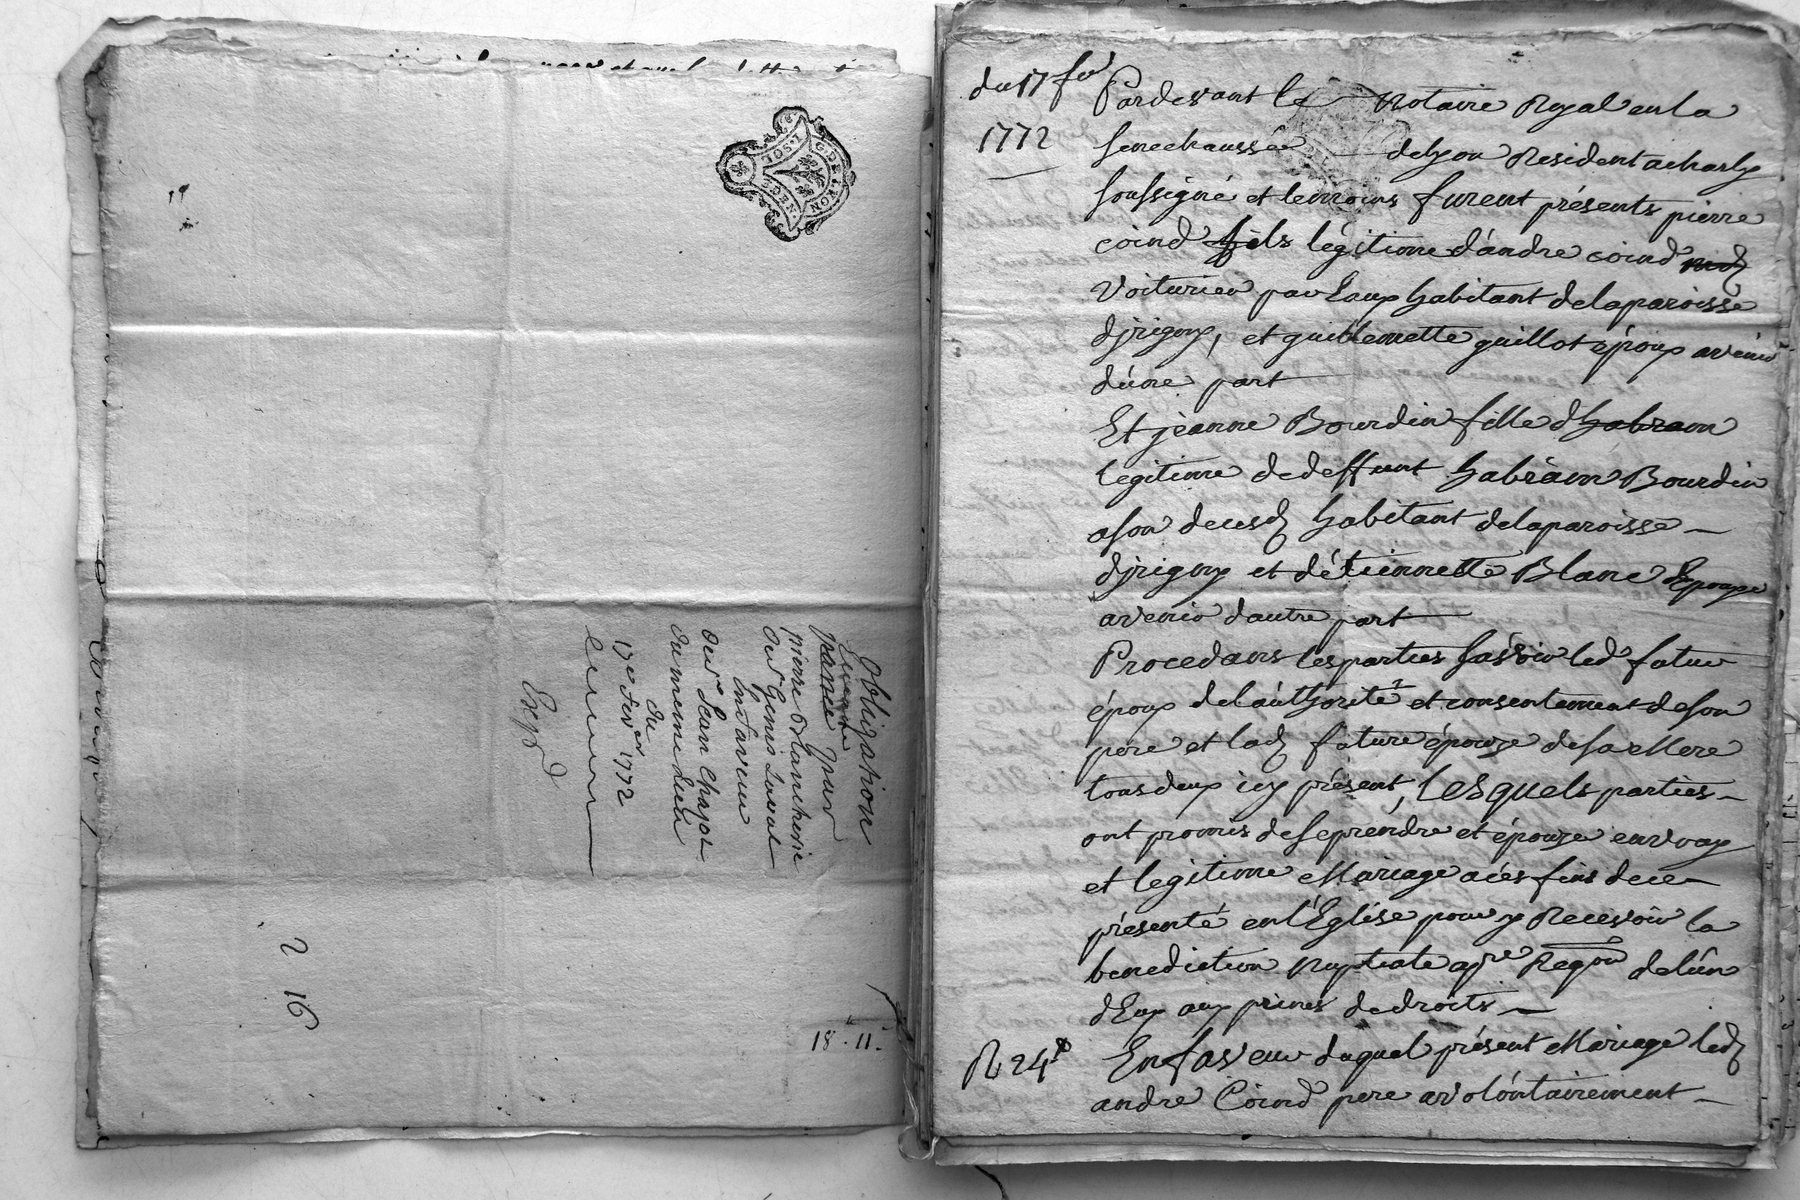 G. DE LYON
2. SOL
8. DEN
Obligation
pour
pierre Blancherie
Sr Genis Laval
En faveur
Sr Jean Chazot
du meme Lieu
du
17e fevrier 1772
Expd
2 16
18 11
du 17 fer
1772
Pardevant le Notaire Royal en la
senechaussée de lyon Resident a charly
soussigné et temoins furent présents pierre
coind fils légitime d'andre coind md
Voiturier par Eaux habitant de la paroisse
d'jrigny, et guillemette guillot époux avenir
d'úne part
Et jeanne Bourdin fille d'habram
legitime de deffunt habràam Bourdin
a son deces habitant de la paroisse
d'jrigny et d'étiennette Blanc Epouze
avenir d'autre part
Procedans les parties sasvoir led futur
époux de l'aúthorité et consentement de son
pere et lad future épouze de sa Mere
tous deux icy présent, Lesquels parties
ont promis de se préndre et épouze en vray
et legitime Mariage a cés fins de ce
présenté en l'Eglise pour y Recevoir la
benediction Nuptiale apre Reqon de l'ún
d'Eux aux peines de droits
En faveur duquel présent Mariage led
andre Coind pere a volóntairement
R 24